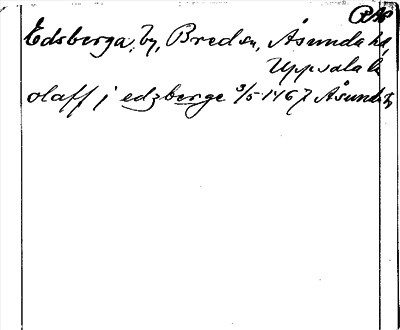 Edsberga, by, Bred sn, Åsunda hd,
Uppsala l
olaff j edzberge 3/5 1467 Åsunda